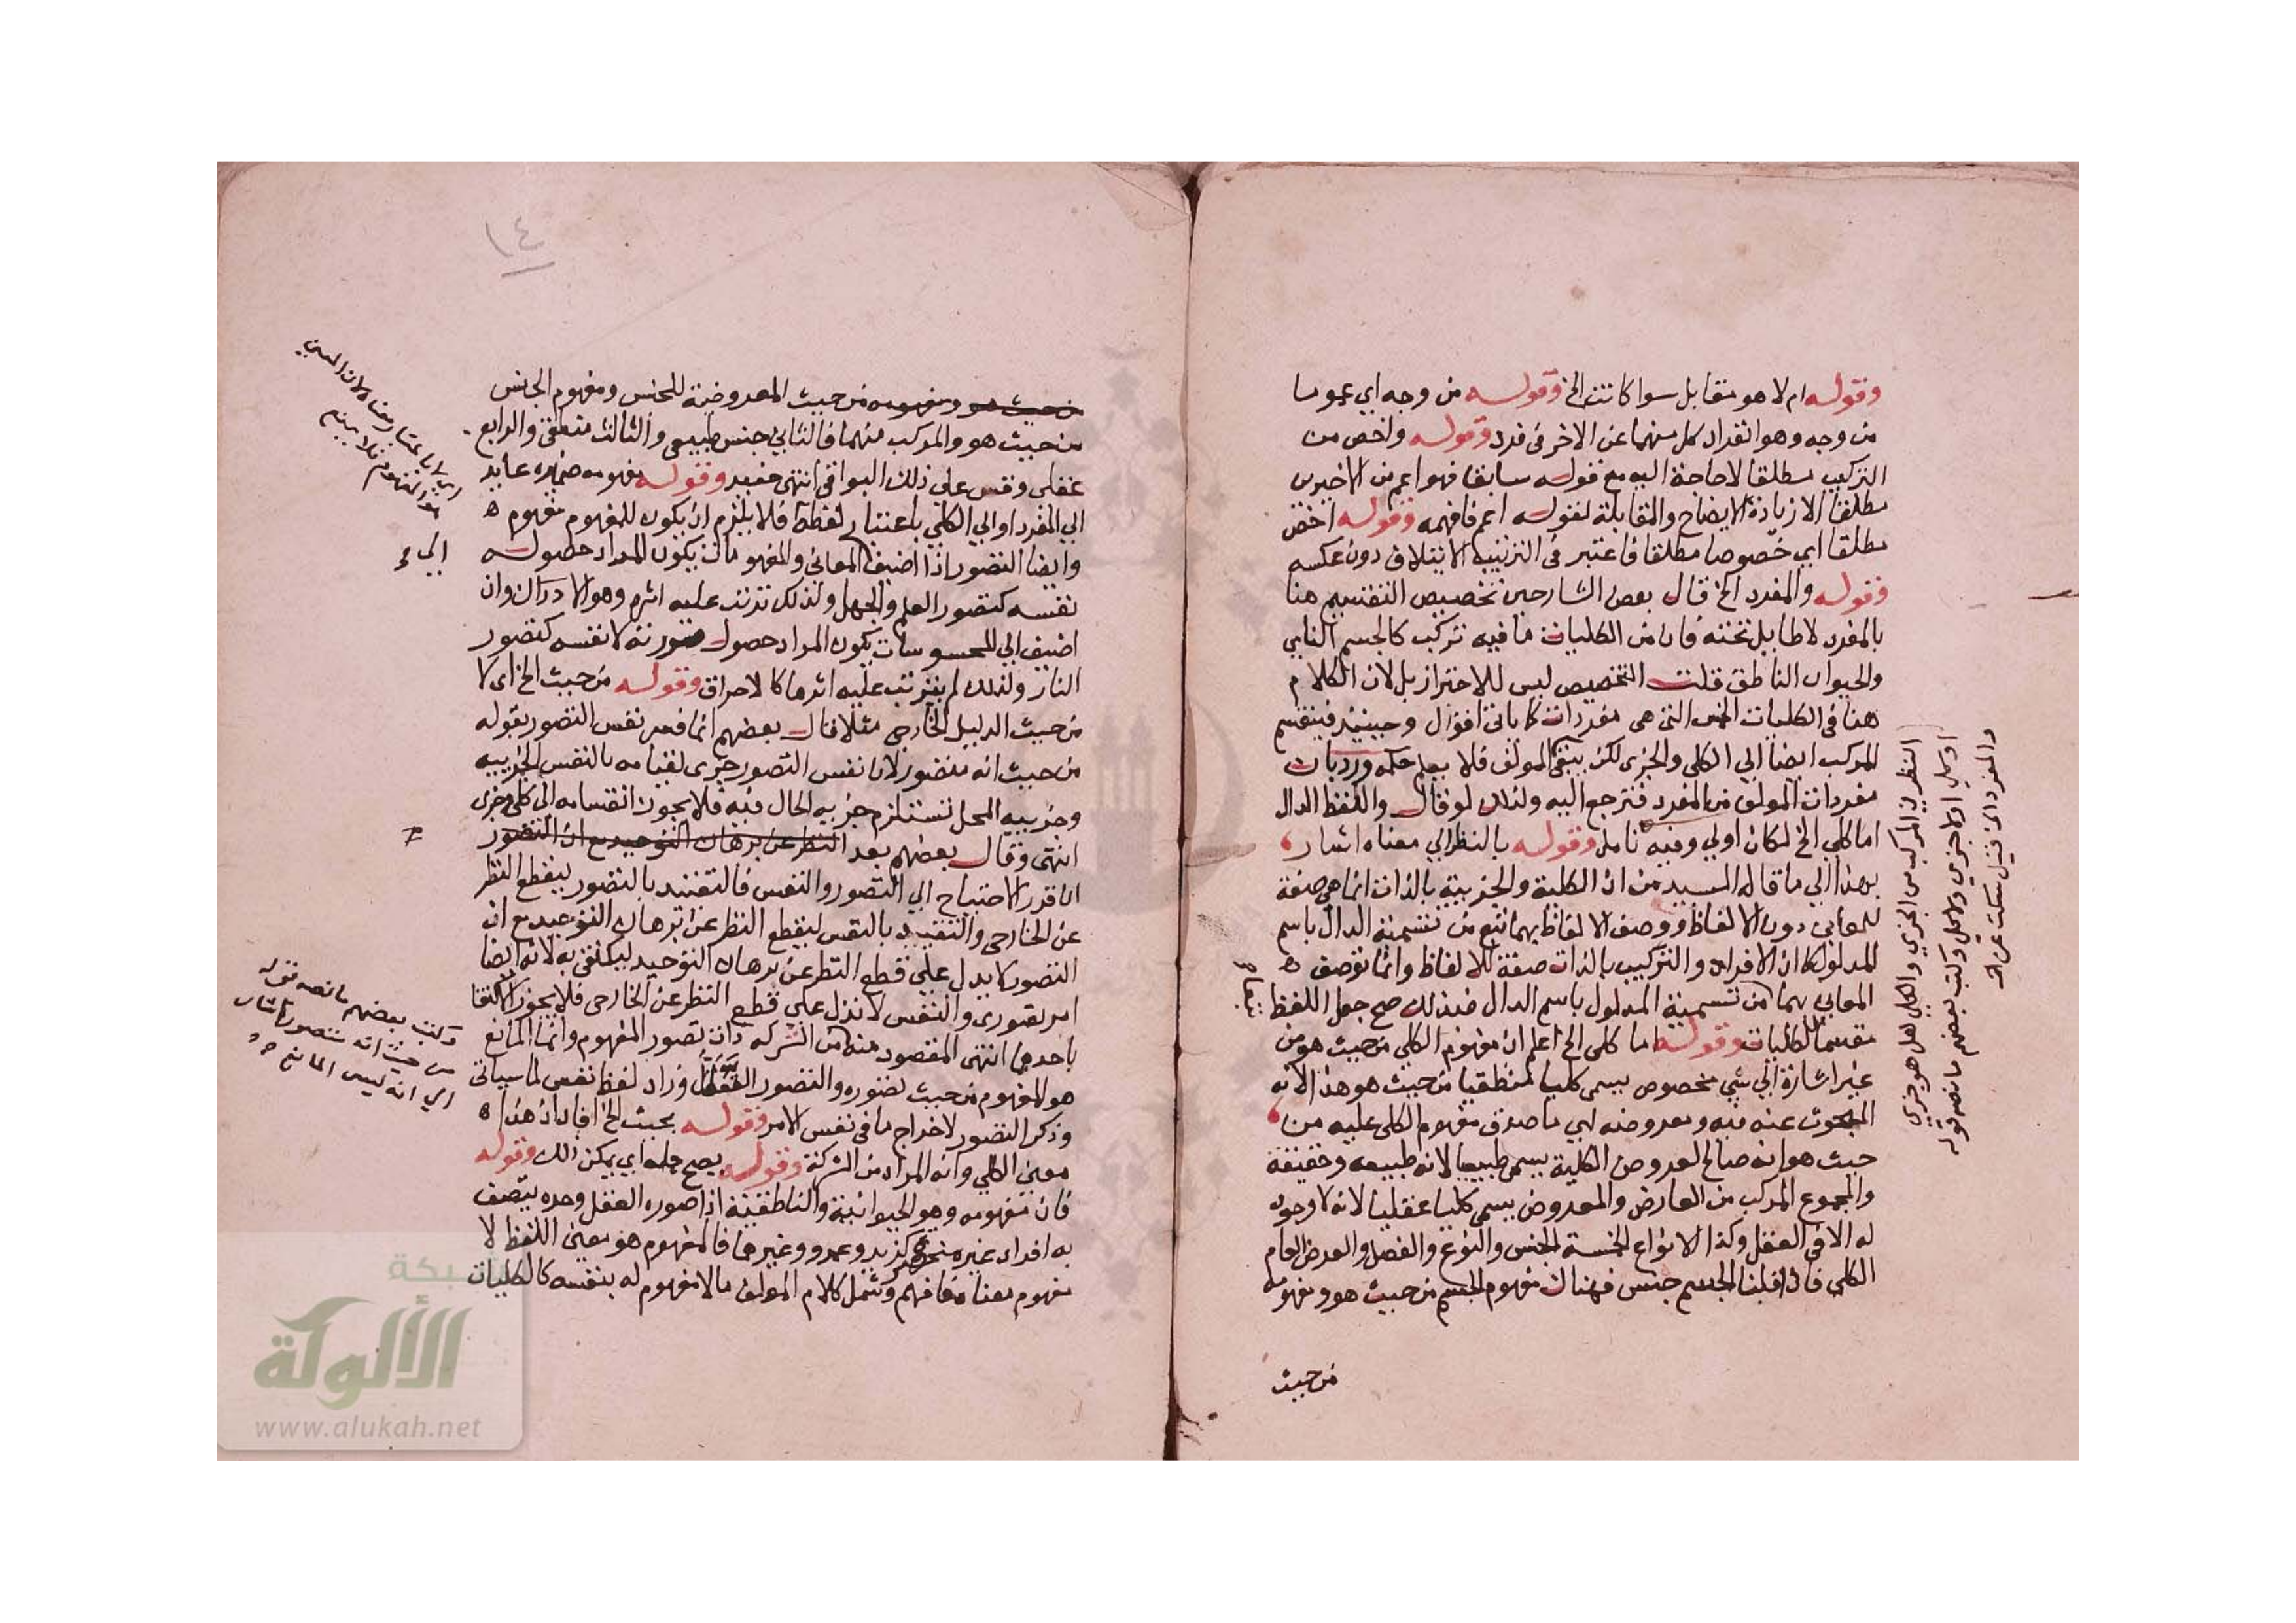 وقوله ام لا هو مقابل سوا كانت الخ وقوله من وجه اي عموما
من وجه وهو انفراد كل منهما عن الاخر في فرد وقوله واخص من
التركيب مطلقا لا حاجة اليه مع قوله سابقا فهو اعم من الاخيرين
مطلقا الا زيادة الايضاح والمقابلة لقوله اعم فافهمه وقوله اخص
مطلقا اي خصوصا مطلقا فاعتبر في الترتيب الايتلاف دون عكسه
وقوله والمفرد الخ قال بعض الشارحين تخصيص التقسيم هنا
بالمفرد لا طايل تحته فان من الكليات ما فيه تركب كالجسم النامي
والحيوان الناطق قلت التخصيص ليس للاحتراز بل لان الكلام
هنا في الكليات الخمس التي هي مفردات كما ياتي اقول وحينيذ فينقسم
المركب ايضا الي الكلي والجزي لكن يبقي المولف فلا يعلم حكمه ورد بان
مفردات المولف من المفرد فترجع اليه ولذلك لو قال واللفظ الدال
اما كلي الخ لكان اولي وفيه تامل وقوله بالنظر الي معناه اشار
بهذا الي ما قاله السيد من ان الكلية والجزيية بالذات انما هي صفة
للمعاني دون الالفاظ ووصف الالفاظ بهما تبع من تسمية الدال باسم
المدلول كما ان الافراد والتركيب بالذات صفة للالفاظ وانما توصف
المعاني بهما من تسمية المدلول باسم الدال فبذلك صح جعل اللفظ
مقسما للكليات وقوله اما كلي الخ اعلم ان مفهوم الكلي من حيث هو من
غير اشارة الي شي مخصوص يسمي كليا منطقيا من حيث هو هذا لانه
المبحوث عنه فيه ومعروضه اي ما صدق مفهوم الكلي عليه من
حيث هو انه صالح لعروض الكلية يسمي طبيعيا لانه طبيعة وحقيقة
والمجموع المركب من العارض والمعروض يسمي كليا عقليا لانه لا وجود
له الا في العقل وكذا الانواع الخمسة الجنس والنوع والفصل والعرض العام
الكلي فاذا قلنا الجسم جنس فهناك مفهوم الجسم من حيث هو ومفهومه
من حيث
النظر في المركب من الجزي والكلي هل هو جزي
او كلي او لا جزي ولا كلي وكتب بعضهم ما نصه قوله
والمفرد الخ قيل سكت عن
١٤
من حيث هو ومفهومه من حيث المعروضية للجنس ومفهوم الجنس
من حيث هو والمركب منهما فالثاني جنس طبيعي والثالث منطقي والرابع
عقلي وقس علي ذلك البواقي انتهي حفيد وقوله مفهومه ضميره عايد
الي المفرد او الي الكلي باعتبار لفظه فلا يلزم ان يكون للمفهوم مفهوم
وايضا التصور اذا اضيف المعاني والمفهومات يكون المراد حصوله
نفسه كتصور العلم والجهل ولذلك ترتب عليه اثره وهو الادراك وان
اضيف الي المحسوسات يكون المراد حصول صورته لا نفسه كتصور
النار ولذلك لم يترتب عليه اثرها كالاحراق وقوله من حيث الخ اي لا
من حيث الدليل الخارجي مثلا قال بعضهم انما فسر نفس التصور بقوله
من حيث انه متصور لان نفس التصور جزي لقيامه بالنفس الجزيية
وجزيية المحل تستلزم جزيية الحال فيه فلا يجوز انقسامه الي كلي وجزي
انتهي وقال بعضهم بعد النظر عن برهان التوحيد مع ان التصور
انا قدر الاحتياج الي التصور والنفس فالتقييد بالتصور ليقطع النظر
عن الخارجي والتقييد بالنفس ليقطع النظر عن برهان التوحيد مع ان
التصور كما يدل علي قطع النظر عن برهان التوحيد ليكتفي به لانه ايضا
امر تصوري والنفس لا تدل علي قطع النظر عن الخارجي فلا يجوز الاكتفا
باحدهما انتهي المقصود منه من الشركة ذات تصور المفهوم وانما المانع
هو المفهوم من حيث تصوره والتصور التعقل وزاد لفظ نفس لما سياتي
وذكر التصور لاخراج ما في نفس الامر وقوله بحيث الخ افاد ان هذا
معني الكلي وانه المراد من الشركة وقوله يصح حمله اي يمكن ذلك وقوله
فان مفهومه وهو الحيوانية والناطقية اذا صوره العقل وحده يتصف
به افراد غيره كزيد وعمرو وغيرهما فالمفهوم هو معني اللفظ لا
مفهوم معناه فافهم وشمل كلام المولف ما لا مفهوم له بنفسه كالكليات
الي
وكتب بعضهم ما نصه قوله
من حيث انه متصور اشار
الي انه ليس المانع
شبكة
الألوكة
www.alukah.net